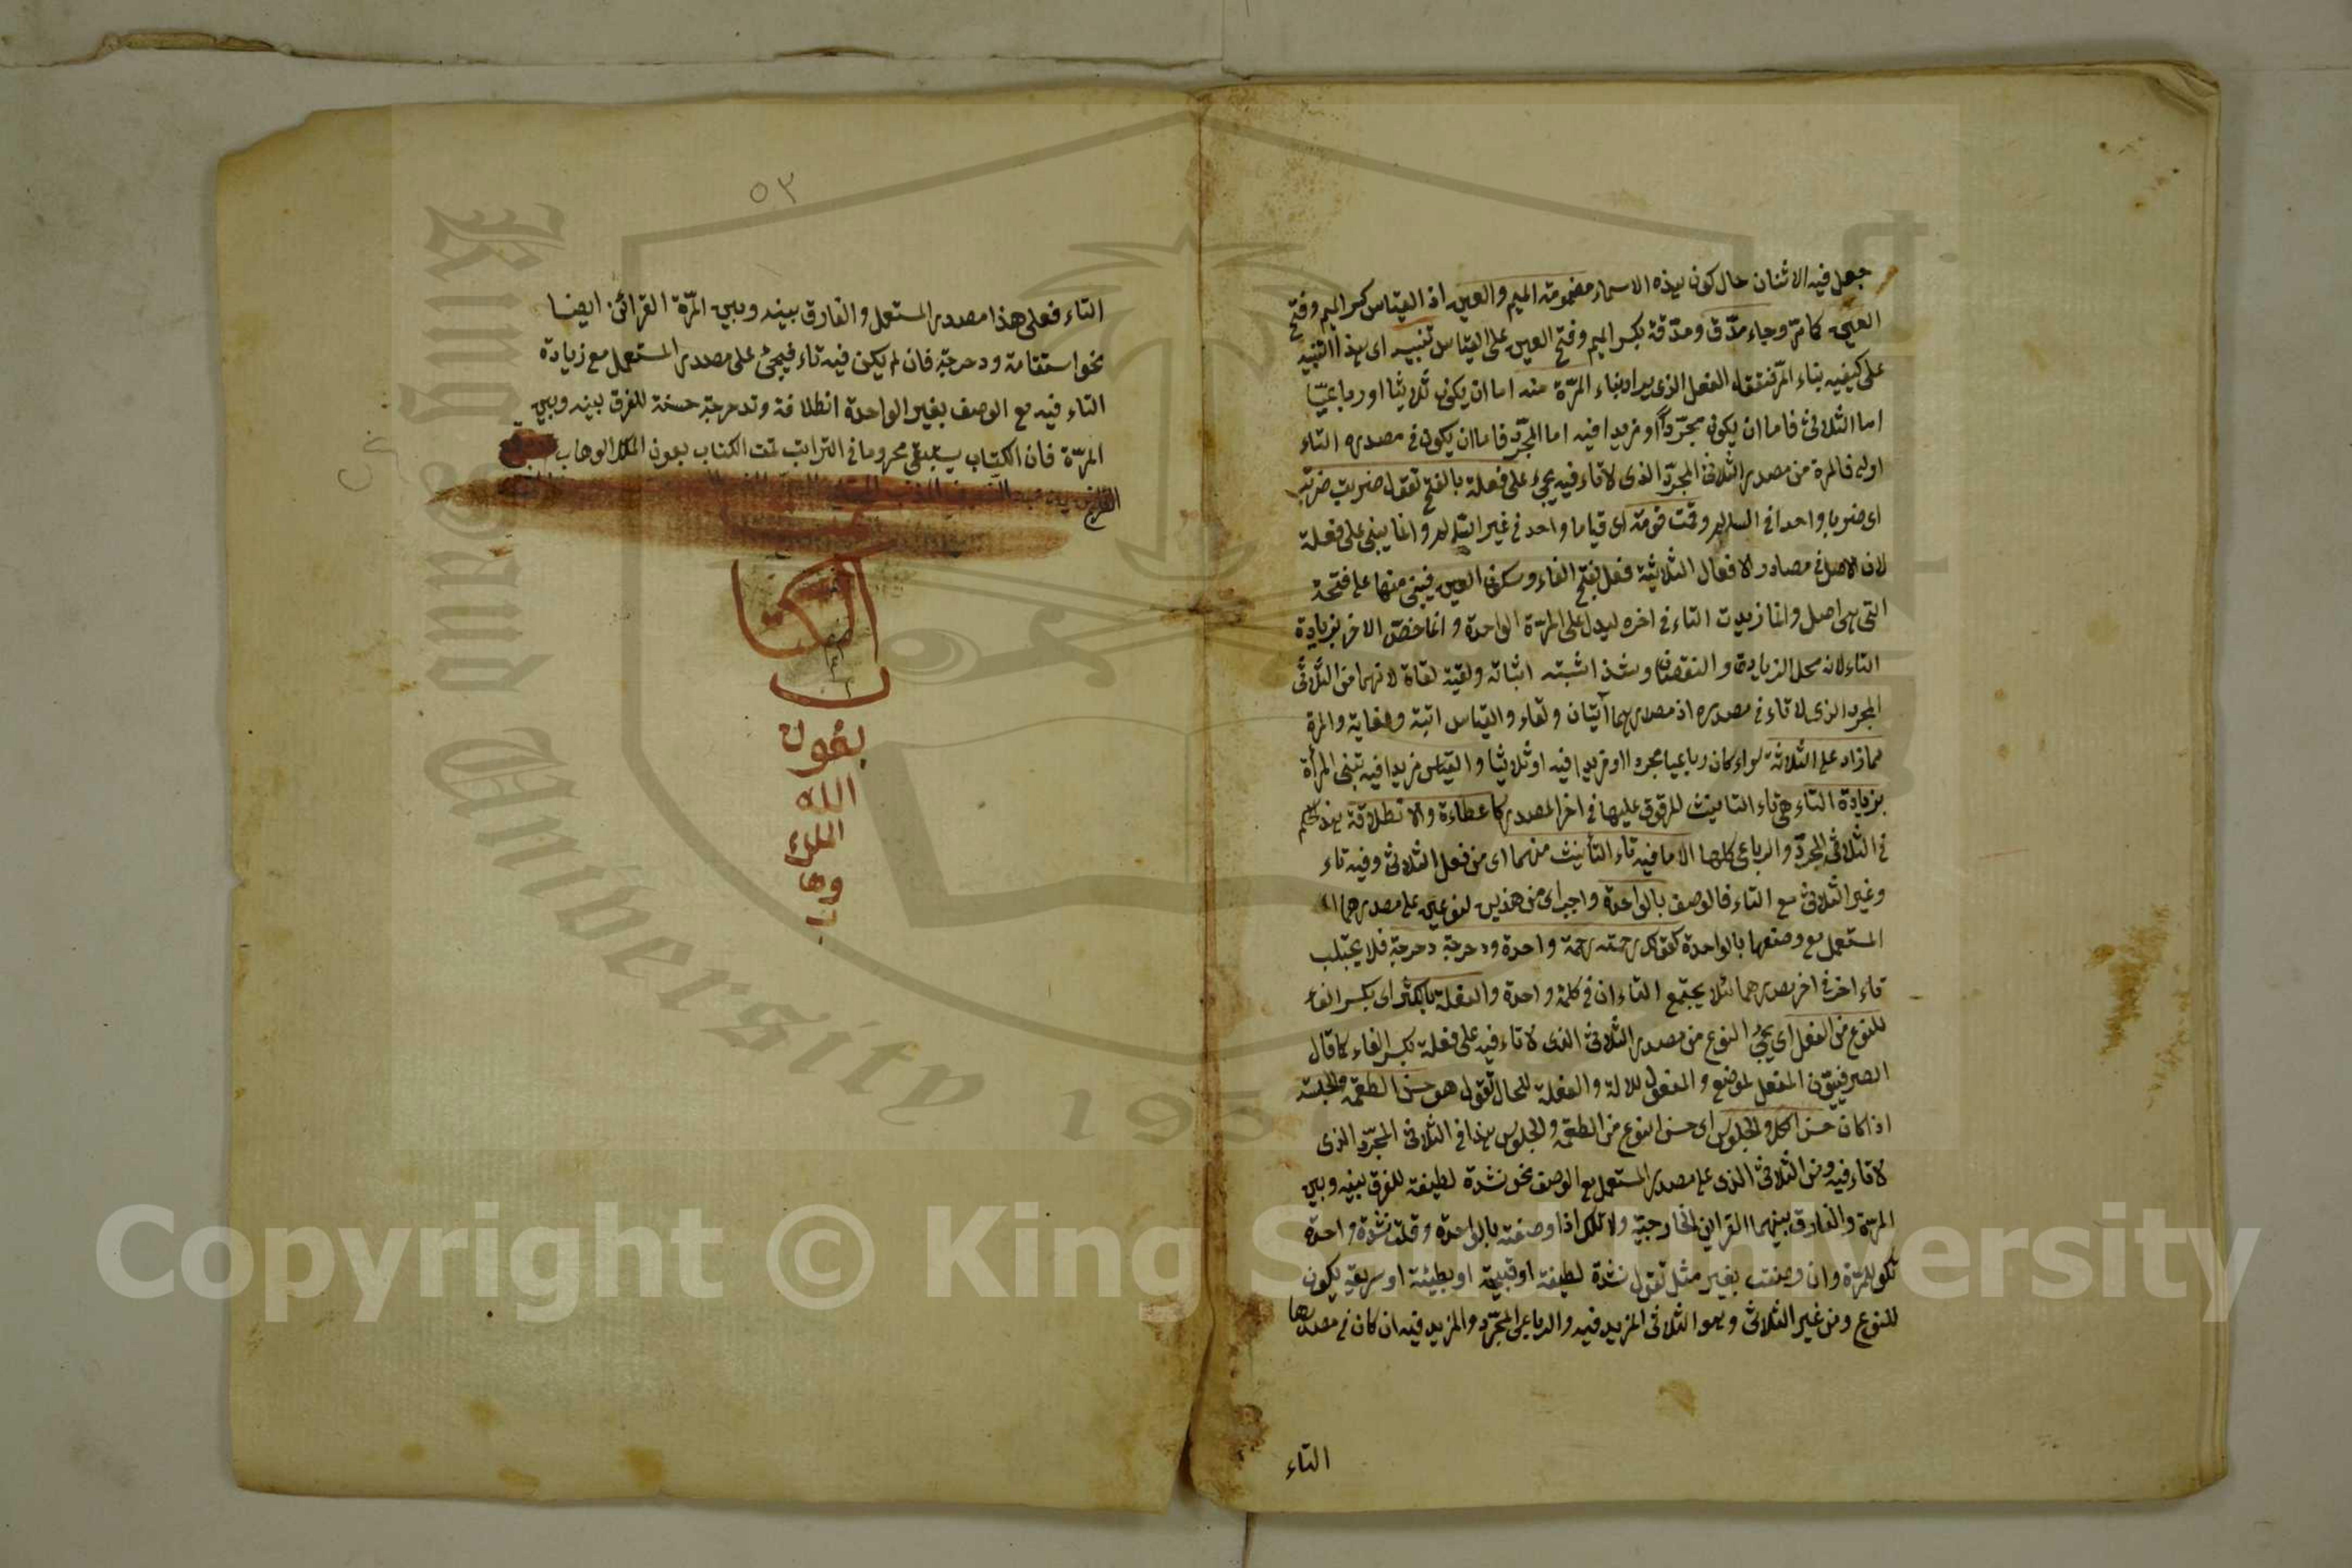 جعل فيه الاثنان حال كون هذه الاسماء مضمومة الميم والعين اذ القياس كسر الميم وفتح
العين كما مرّ وجاء مدّق ومدّقة بكسر الميم وفتح العين على القياس تنبيه اى هذا التنبيه
على كيفيه بناء المرّة فنقول الفعل الذى يراد بناء المرّة منه اما ان يكون ثلاثيا او رباعيّا
اما الثلاثى فاما ان يكون مجرّدا او مزيدا فيه اما المجرّد فاما ان يكون فى مصدره التاء
اولا فالمرة من مصدر الثلاثى المجرّد الذى لا تاء فيه يجىء على فعلة بالفتح تقول ضربت ضربة
اى ضربا واحدا فى السالم وقمت قومة اى قياما واحد فى غير السالم وانما يبنى على فعلة
لان الاصل فى مصادر الافعال الثلاثية فعل بفتح الفاء وسكون العين فيبنى منها على فتحة
التى هى اصل وانما زيدت التاء فى اخره ليدل على المرّة الواحدة وانما خصّ الاخر بزيادة
التاء لانه محل الزيادة والنقصان وشذ اتيته اتيانة ولقيته لقاة لانهما من الثلاثى
المجرد الذى لا تاء فى مصدره اذ مصدرهما اتيان ولقاء والقياس اتية ولقاية والمرة
مما زاد على الثلاثة سواء كان رباعيا مجردا او مزيدا فيه او ثلاثيا والقياس مزيدا فيه تبنى المرأة
بزيادة التاء هى تاء التانيث الموقوف عليها فى اخر المصدر كاعطاءة والانطلاقة هذا حكم
فى الثلاثى المجرّد والرباعى كلها الا ما فيه تاء التأنيث منهما اى من فعل الثلاثى وفيه تاء
وغير الثلاثى مع التاء فالوصف بالواحدة واجب اى من هذين النوعين على مصدرهما
المستعمل مع وصفها بالواحدة كقولك رحمته رحمة واحدة ودحرجة دحرجة فلا يجتلب
تاء اخر فى اخر مصدرهما لئلا يجتمع التاءان فى كلمة واحدة والفعلة بالكسر اى بكسر الفاء
للنوع من الفعل اى يجئ النوع من مصدر الثلاثى الذى لا تاء فيه على فعلة بكسر الفاء كما قال
الصرفيّون المفعل لموضع والمفعول للالة والفعلة للحال تقول هو حسن الطعمة والجلسة
اذا كان حسن الاكل والجلوس اى حسن النوع من الطعم والجلوس هذا فى الثلاثى المجرّد الذى
لا تاء فيه ومن الثلاثى الذى على مصدر المستعمل مع الوصف نحو نشدة لطيفة للفرق بينه وبين
المرّة والفارق بينهما القراين الخارجيّة ولانك اذا وصفته بالواحدة وقلت نشدة واحدة
تكو للمرّة وان وصفت بغير مثل تقول نشدة لطيفة او قبيحة او بطيئة او سريعة يكون
للنوع ومن غير الثلاثى وهو الثلاثى المزيد فيه والرباعى المجرّد والمزيد فيه ان كان فى مصدرها
التاء
٥٣
التاء فعلى هذا مصدر المستعمل والفارق بينه وبين المرّة القرائن ايضا
نحو استقامة ودحرجة فان لم يكن فيه تاء فيجئ على مصدر المستعمل مع زيادة
التاء فيه مع الوصف بغير الواحدة انطلاقة وتدحرجة حسنة للفرق بينه وبين
المرّة فان الكتاب يستبقى محروما فى التراب تمت الكتاب بعون الملك الوهاب
بعون
الله
الملك
وها
ب